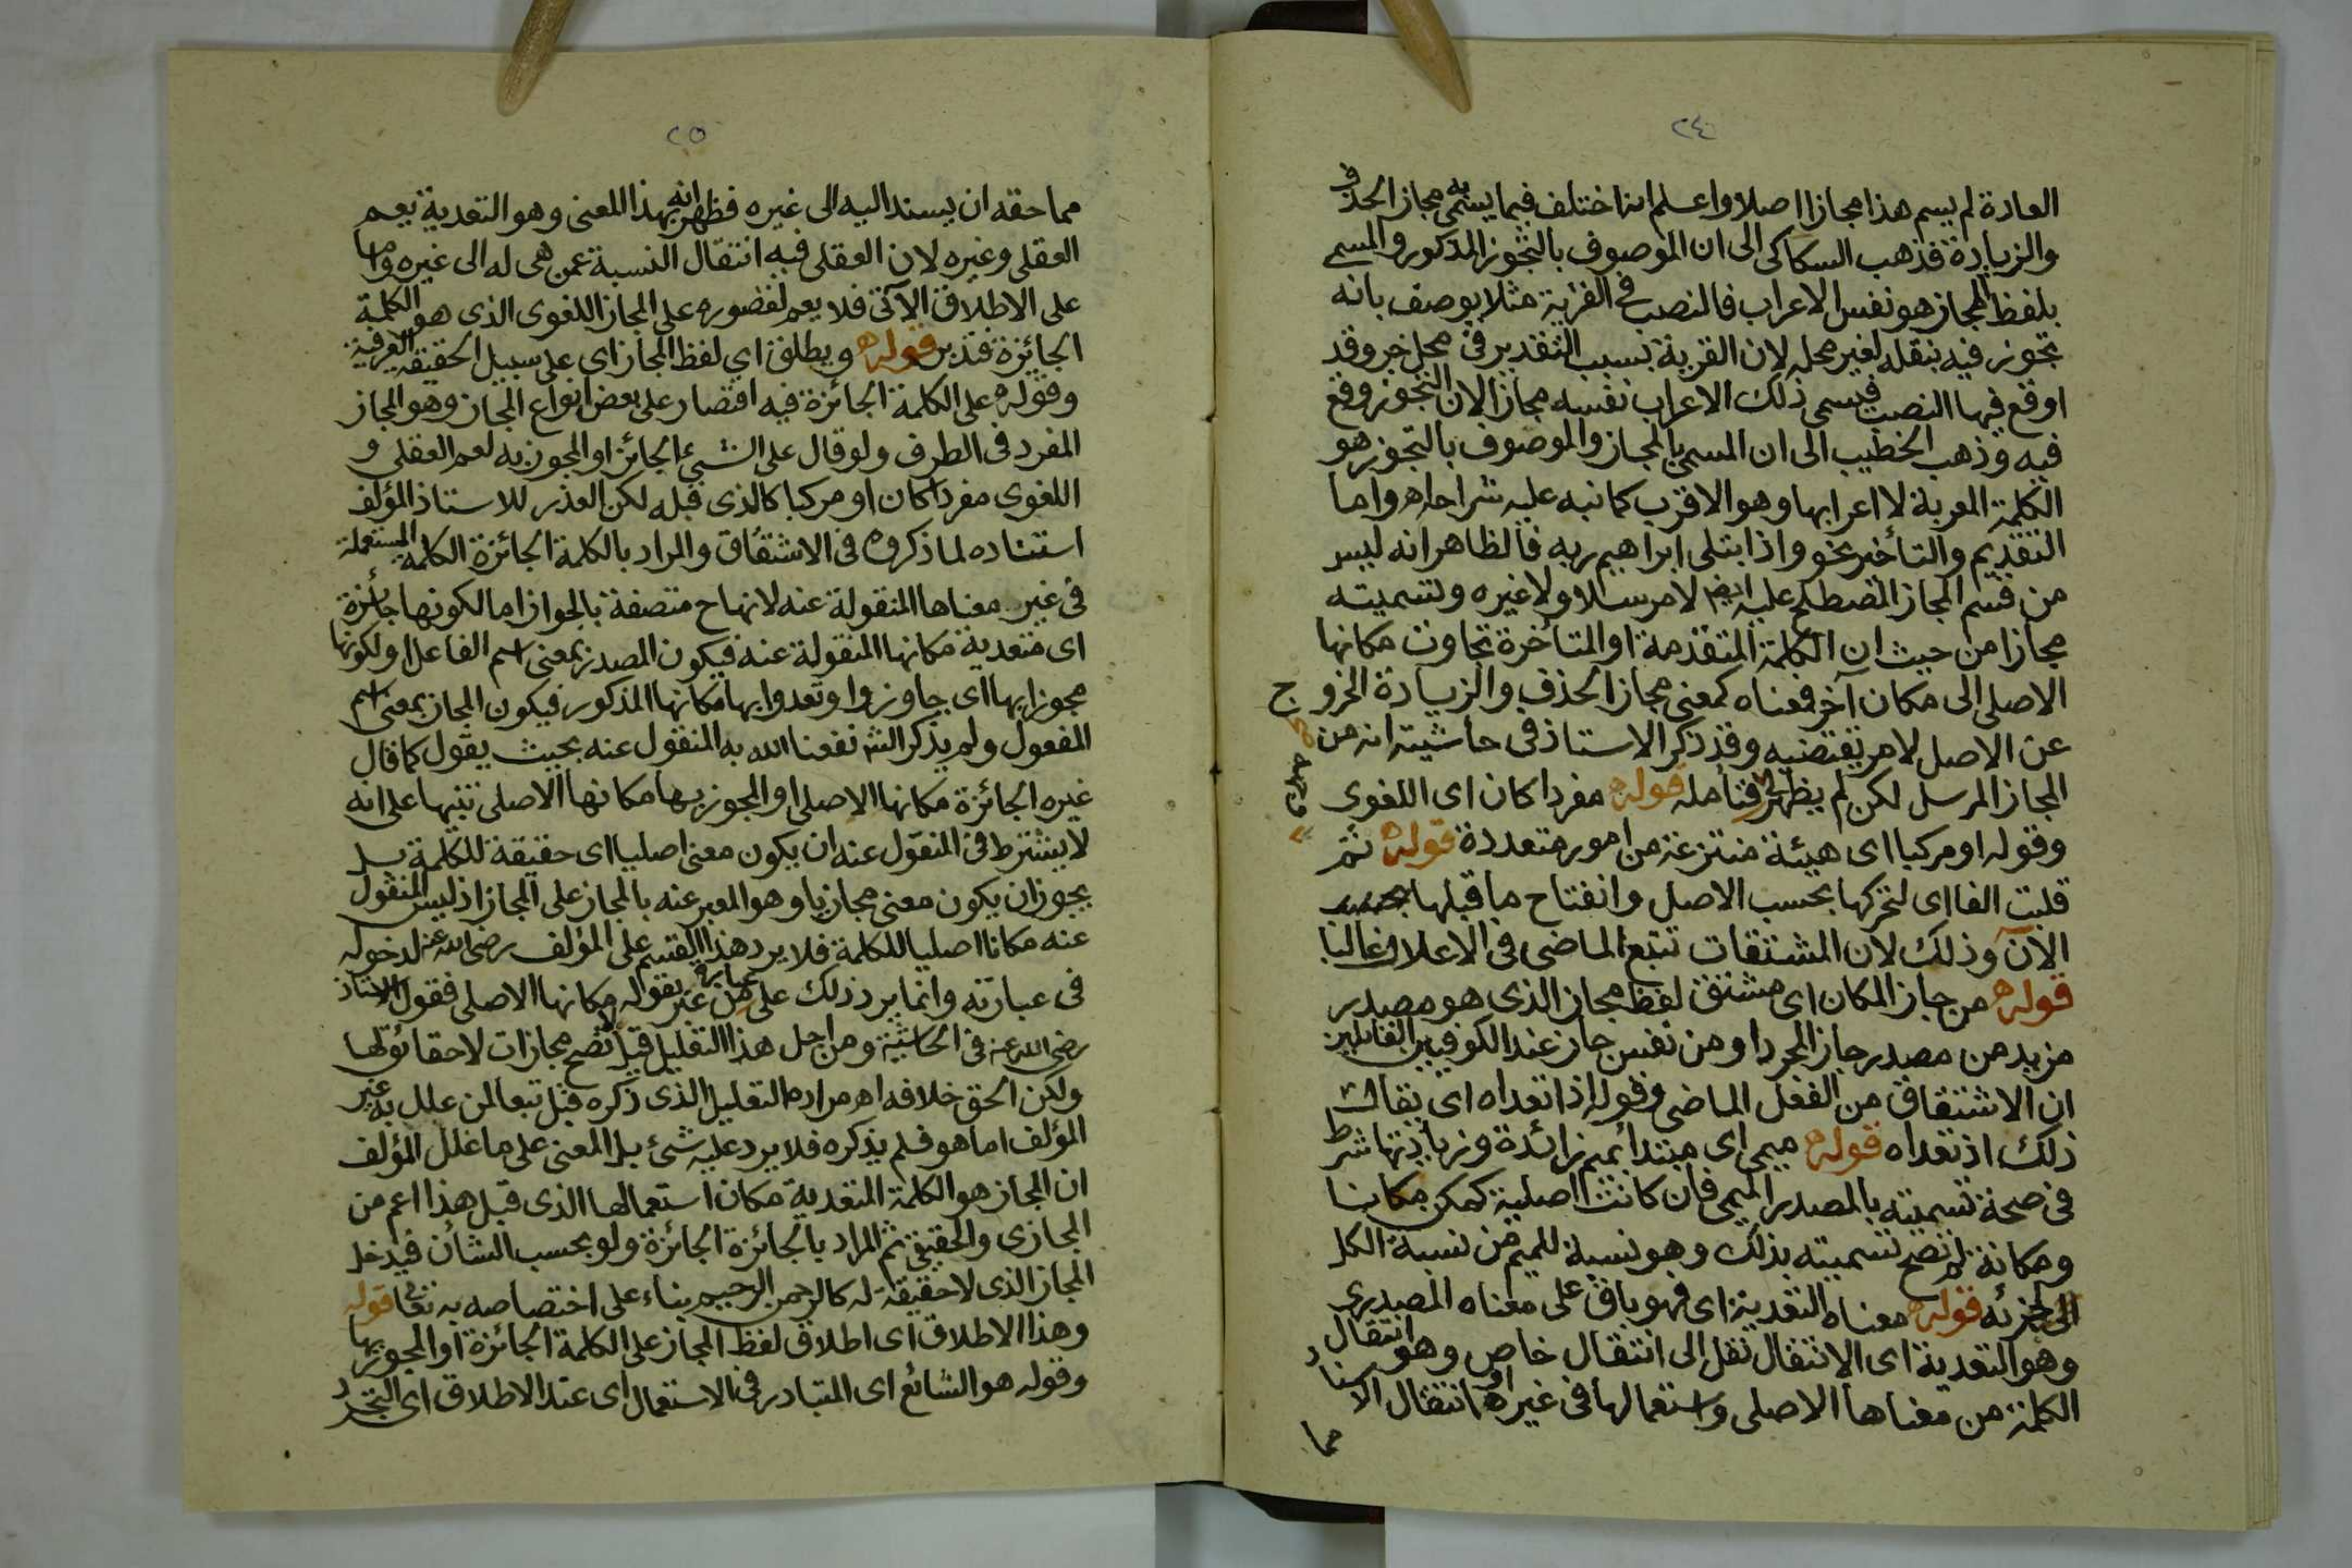 ٢٤
العادة لم يسم هذا مجازا اصلا واعلم انه اختلف فيما يسمى به مجاز الحذف
والزيادة فذهب السكاكى الى ان الموصوف بالتجوز المذكور والمسمى
بلفظ المجاز هو نفس الاعراب فالنصب فى القرية مثلا يوصف بانه
تجوز فيه بنقله لغير محله لان القرية بسبب التقدير فى محل جر وقد
اوقع فيها النصب فيسمى ذلك الاعراب نفسه مجازا لان التجوز وقع
فيه وذهب الخطيب الى ان المسمى بالمجاز والموصوف بالتجوز هو
الكلمة المعربة لا اعرابها وهو الاقرب كما نبه عليه شراحه اهـ واما
التقديم والتأخير نحو واذ ابتلى ابراهيم ربه فالظاهر انه ليس
من قسم المجاز المصطلح عليه ايضا لا مرسلا ولا غيره وتسميته
مجازا من حيث ان الكلمة المتقدمة او المتأخرة تجاوزت مكانها
الاصلى الى مكان آخر فمعناه كمعنى مجاز الحذف والزيادة الخروج
عن الاصل لامر يقتضيه وقد ذكر الاستاذ فى حاشيته انه من
المجاز المرسل لكن لم يظهر لى فتأمله قوله مفردا كان اى اللغوى
وقوله او مركبا اى هيئة منتزعة من امور متعددة قوله ثم
قلبت الفا اى لتحركها بحسب الاصل وانفتاح ما قبلها بحسب
الآن وذلك لان المشتقات تتبع الماضى فى الاعلال غالبا
قوله من جاز المكان اى مشتق لفظ مجاز الذى هو مصدر
مزيد من مصدر جاز المجرد او من نفس جاز عند الكوفيين القائلين
ان الاشتقاق من الفعل الماضى وقوله اذا تعداه اى يقال
ذلك اذ تعداه قوله ميمى اى مبتدأ بميم زائدة وزيادتها شرط
فى صحة تسميته بالمصدر الميمى فان كانت اصلية كمكن مكانا
ومكانة لم تصح تسميته بذلك وهو نسبة للميم من نسبة الكل
الى جزئه قوله معناه التعدية اى فهو باق على معناه المصدرى
وهو التعدية اى الانتقال نقل الى انتقال خاص وهو انتقال
الكلمة من معناها الاصلى واستعمالها فى غيره او انتقال الاسناد
مما
٢٥
مما حقه ان يسند اليه الى غيره فظهر انه بهذا المعنى وهو التعدية يعم
العقلى وغيره لان العقلى فيه انتقال النسبة عمن هى له الى غيره واما
على الاطلاق الآتى فلا يعم لقصوره على المجاز اللغوى الذى هو الكلمة
الجائزة فتدبر قوله ويطلق اي لفظ المجاز اى على سبيل الحقيقة العرفية
وقوله على الكلمة الجائزة فيه اقتصار على بعض انواع المجاز وهو المجاز
المفرد فى الطرف ولو قال على الشيئ الجائز او المجوز به لعم العقلى و
اللغوى مفردا كان او مركبا كالذى قبله لكن العذر للاستاذ المؤلف
استناده لما ذكروه فى الاشتقاق والمراد بالكلمة الجائزة الكلمة المستعملة
فى غير معناها المنقولة عنه لانها ح متصفة بالجواز اما لكونها جائزة
اى متعدية مكانها المنقولة عنه فيكون المصدر بمعنى اسم الفاعل او لكونها
مجوزا بها اى جاوزوا وتعدوا بها مكانها المذكور فيكون المجاز بمعنى اسم
المفعول ولم يذكر الش نفعنا الله به المنقول عنه بحيث يقول كما قال
غيره الجائزة مكانها الاصلى او المجوز بها مكانها الاصلى تنبيها على انه
لا يشترط فى المنقول عنه ان يكون معنى اصليا اى حقيقة للكلمة بل
يجوز ان يكون معنى مجازيا وهو المعبر عنه بالمجاز على المجاز اذ ليس المنقول
عنه مكانا اصليا للكلمة فلا يرد هذا القسم على المؤلف رضى الله عنه لدخوله
فى عبارته وانما يرد ذلك على من عبارته غير بقوله مكانها الاصلى فقول الاستاذ
رضى الله عنه فى الحاشية ومن اجل هذا التعليل قيل تصح مجازات لا حقائق لها
ولكن الحق خلافه اهـ مراده التعليل الذى ذكره قبل تبعا لمن علل به غير
المؤلف اما هو فلم يذكره فلا يرد عليه شئ بل المعنى على ما علل المؤلف
ان المجاز هو الكلمة المتعدية مكان استعمالها الذى قبل هذا اعم من
المجازى والحقيقى ثم المراد بالجائزة الجائزة ولو بحسب الشأن فيدخل
المجاز الذى لا حقيقة له كالرحمن الرحيم بناء على اختصاصه به تعالى قوله
وهذا الاطلاق اى اطلاق لفظ المجاز على الكلمة الجائزة او المجوز بها
وقوله هو الشائع اى المتبادر فى الاستعمال اى عند الاطلاق اى التجرد